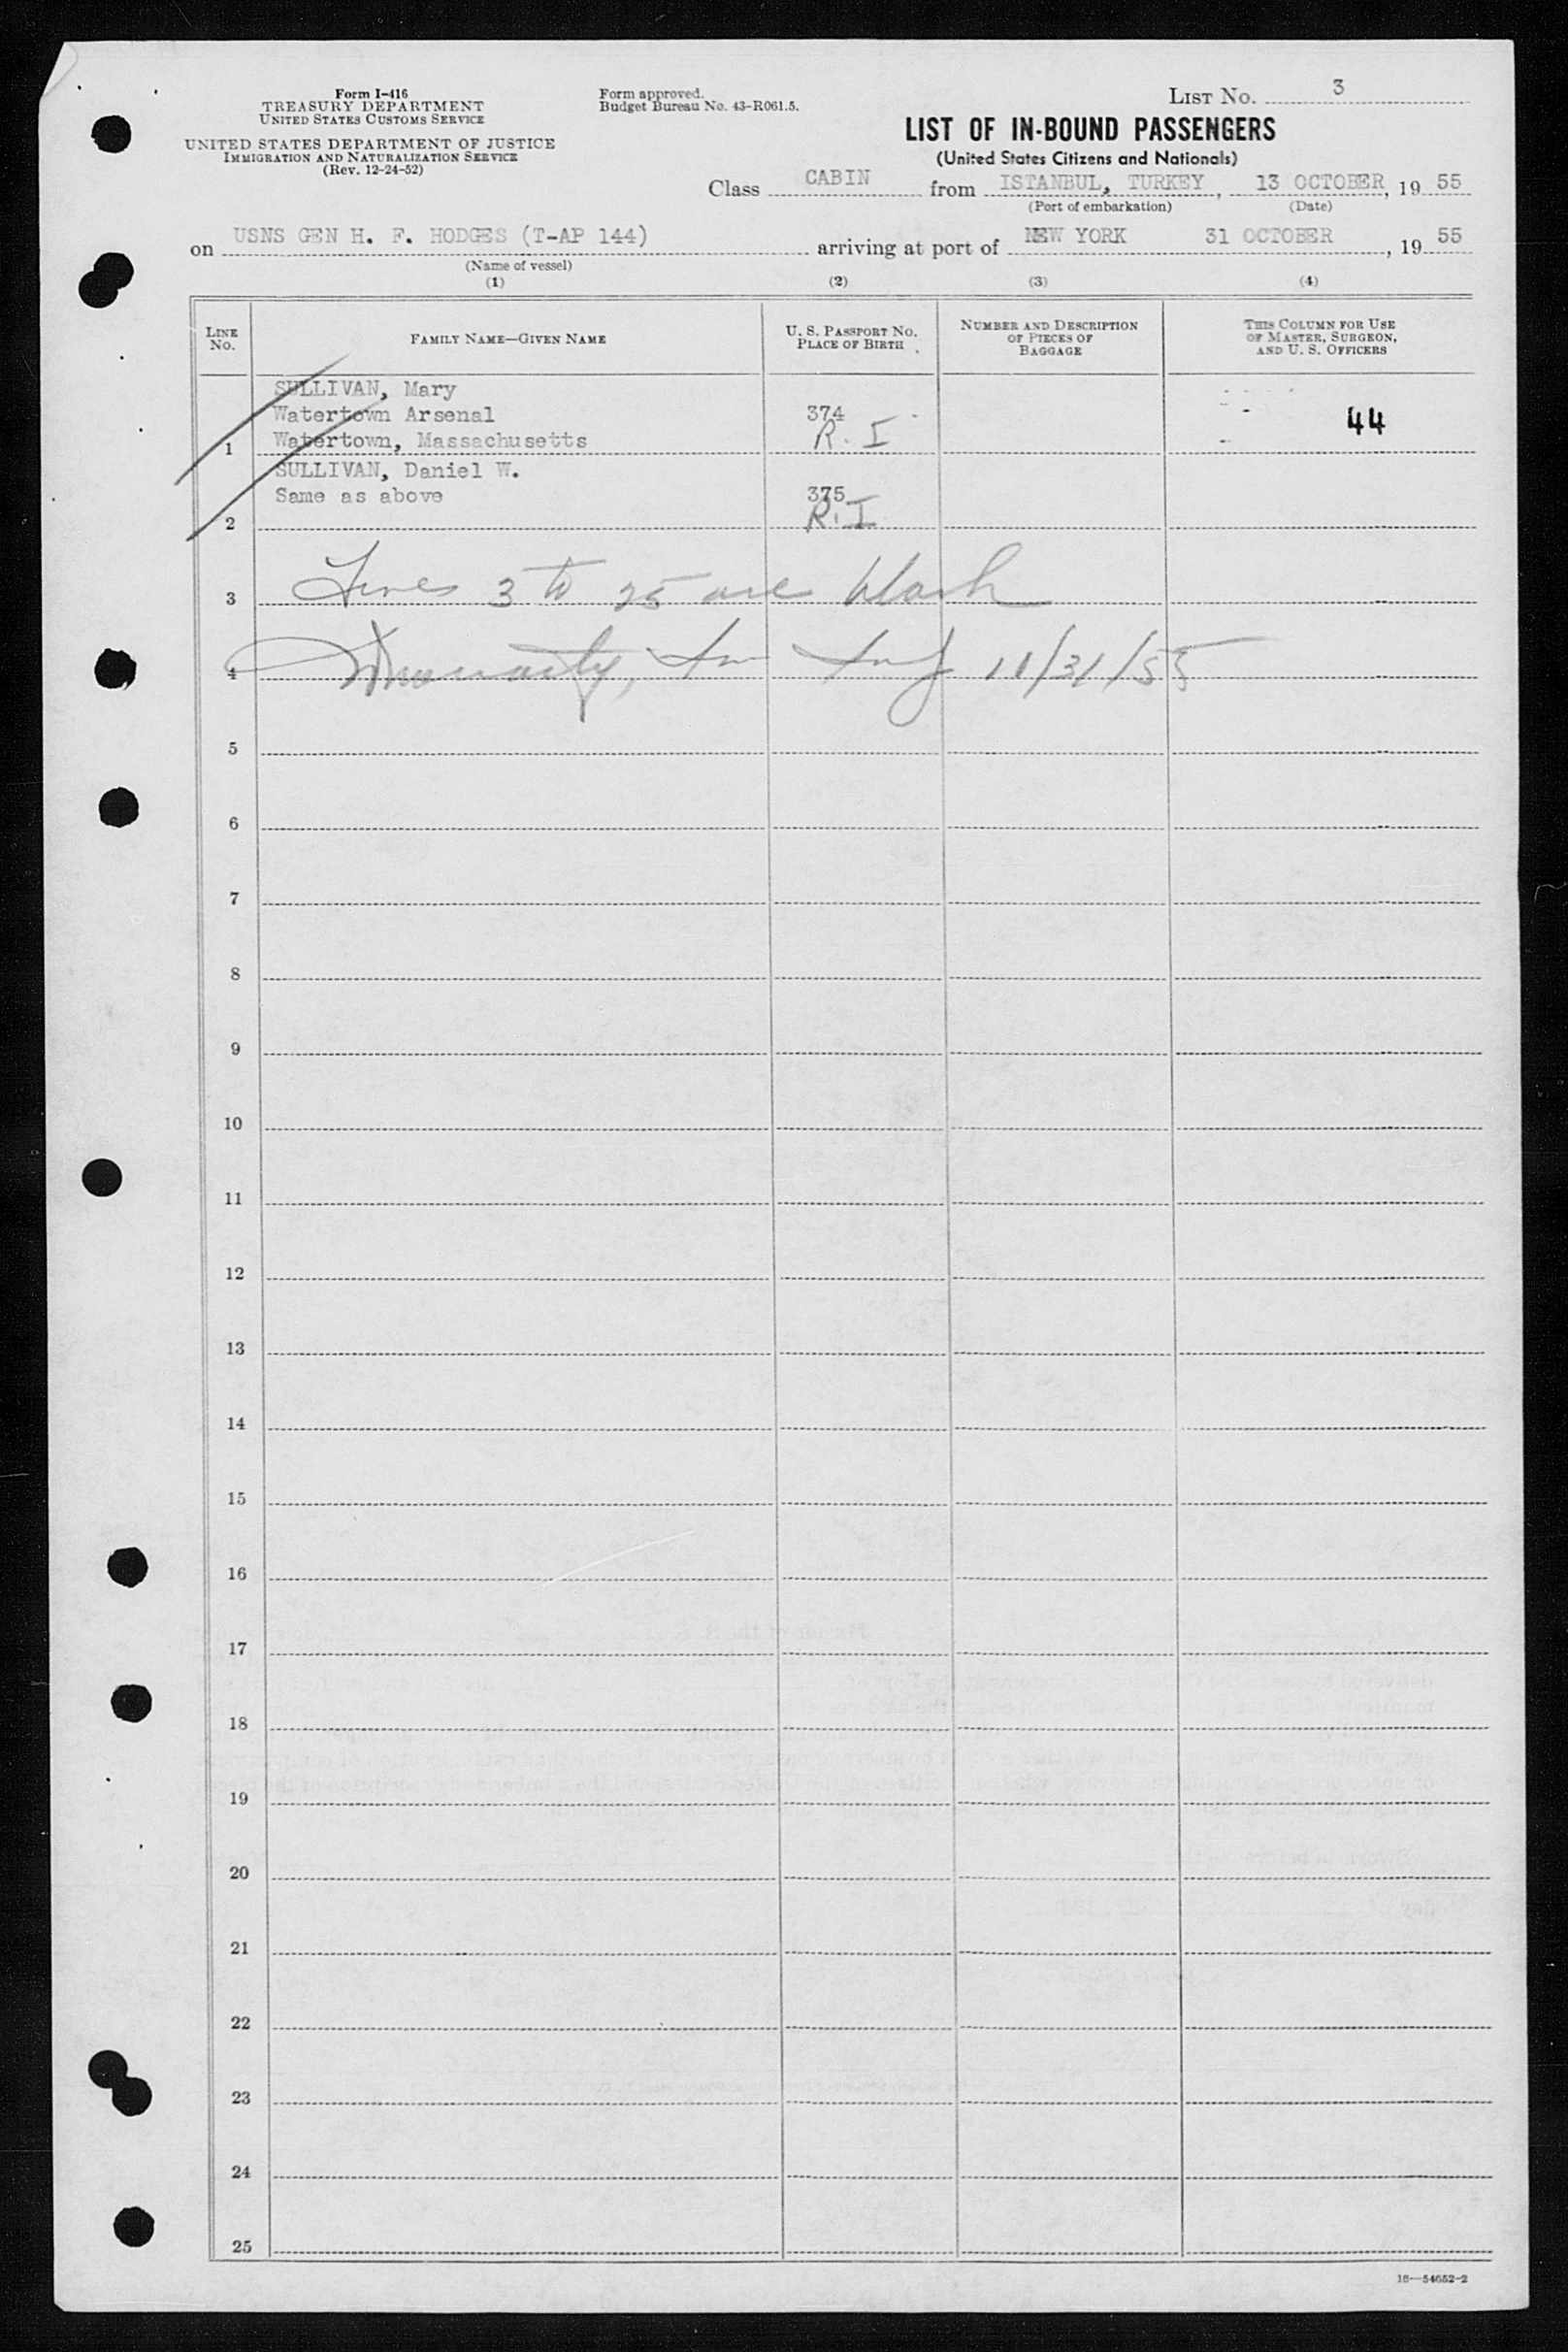 Form I-416
TREASURY DEPARTMENT
UNITED STATES CUSTOMS SERVICE
UNITED STATES DEPARTMENT OF JUSTICE
IMMIGRATION AND NATURALIZATION SERVICE
(Rev. 12-24-52)
Form approved.
Budget Bureau No. 43-R061.5.
LIST NO. 3
LIST OF IN-BOUND PASSENGERS
(United States Citizens and Nationals)
Class CABIN from ISTANBUL, TURKEY, 13 OCTOBER, 19 55
(Port of embarkation) (Date)
on USNS GEN H. F. HODGES (T-AP 144) arriving at port of NEW YORK 31 OCTOBER, 19 55
(Name of vessel)
(1) (2) (3) (4)
LINE NO.
FAMILY NAME—GIVEN NAME
U. S. PASSPORT NO.
PLACE OF BIRTH
NUMBER AND DESCRIPTION
OF PIECES OF
BAGGAGE
THIS COLUMN FOR USE
OF MASTER, SURGEON,
AND U. S. OFFICERS
SULLIVAN, Mary
Watertown Arsenal 374 44
1 Watertown, Massachusetts R. I
SULLIVAN, Daniel W.
Same as above 375
2 R. I
3 Lines 3 to 25 are blank
4 10/31/55
5
6
7
8
9
10
11
12
13
14
15
16
17
18
19
20
21
22
23
24
25
16—54652-2